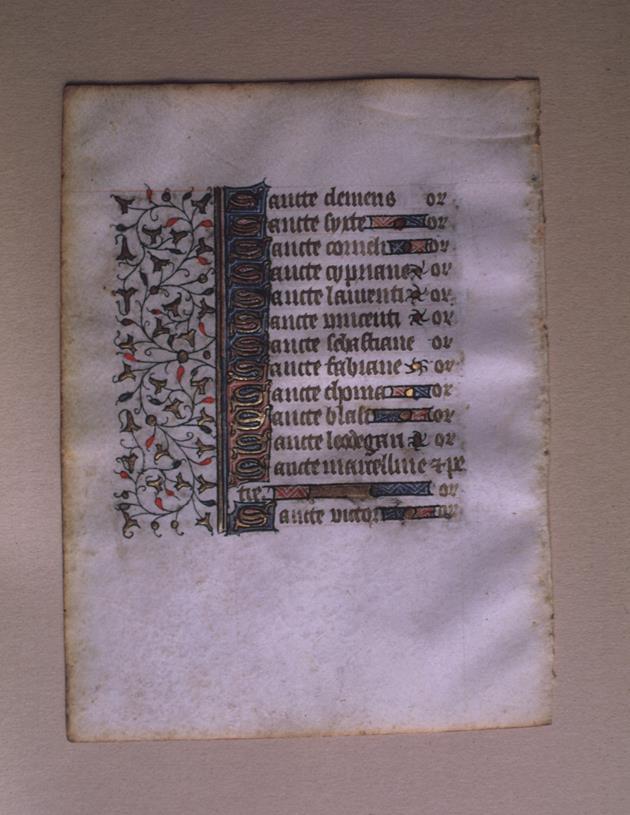 Sancte clemens or
Sancte syxte or
Sancte corneli or
Sancte cypriane or
Sancte laurenti or
Sancte vincenti or
Sancte sebastiane or
Sancte fabiane or
Sancte thoma or
Sancte blasi or
Sancte leodegari or
Sancte marcelline & pe
tre or
Sancte victor or